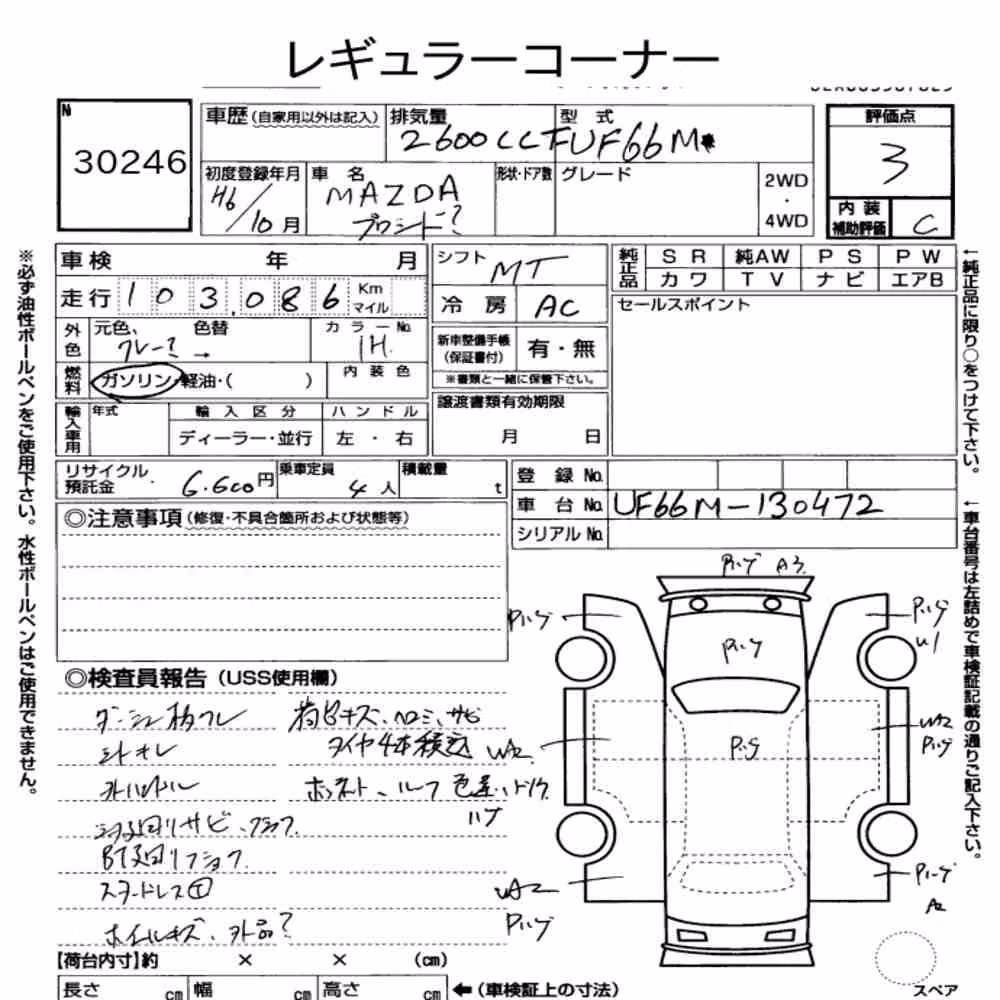 レギュラーコーナー
№
30246
車歴 (自家用以外は記入)
排気量
2600CC
型式
UF66M
評価点
3
内装
補助評価
C
初度登録年月
H6/10月
車名
MAZDA
プロシード?
形状・ドア数
グレード
2WD
・
4WD
車検 年 月
走行 103,086 Km マイル
外色
元色、 色替
グレー? →
カラーNo.
1H
燃料
ガソリン・軽油・( )
内装色
輸入車用
年式
輸入区分
ディーラー・並行
ハンドル
左・右
シフト
MT
冷房
AC
新車整備手帳
(保証書付)
有・無
※書類と一緒に保管下さい。
譲渡書類有効期限
月 日
純正品
SR 純AW PS PW
カワ TV ナビ エアB
セールスポイント
リサイクル
預託金
6.600円
乗車定員
4人
積載量
t
登録No.
車台No. UF66M-130472
シリアルNo.
◎注意事項 (修復・不具合箇所および状態等)
◎検査員報告 (USS使用欄)
荷台キズ、ヘコミ、サビ
シートスレ
タイヤ4本積込
ボンネット、ルーフ 色差
下廻りサビ
スタッドレス
ホイールキズ、外品?
A3
U1
WA2
WA2
A2
【荷台内寸】約 × × (cm)
長さ cm 幅 cm 高さ cm ←(車検証上の寸法)
スペア
※必ず油性ボールペンをご使用下さい。水性ボールペンはご使用できません。
←純正品に限り○をつけて下さい。
←車台番号は左詰めで車検証記載の通りご記入下さい。